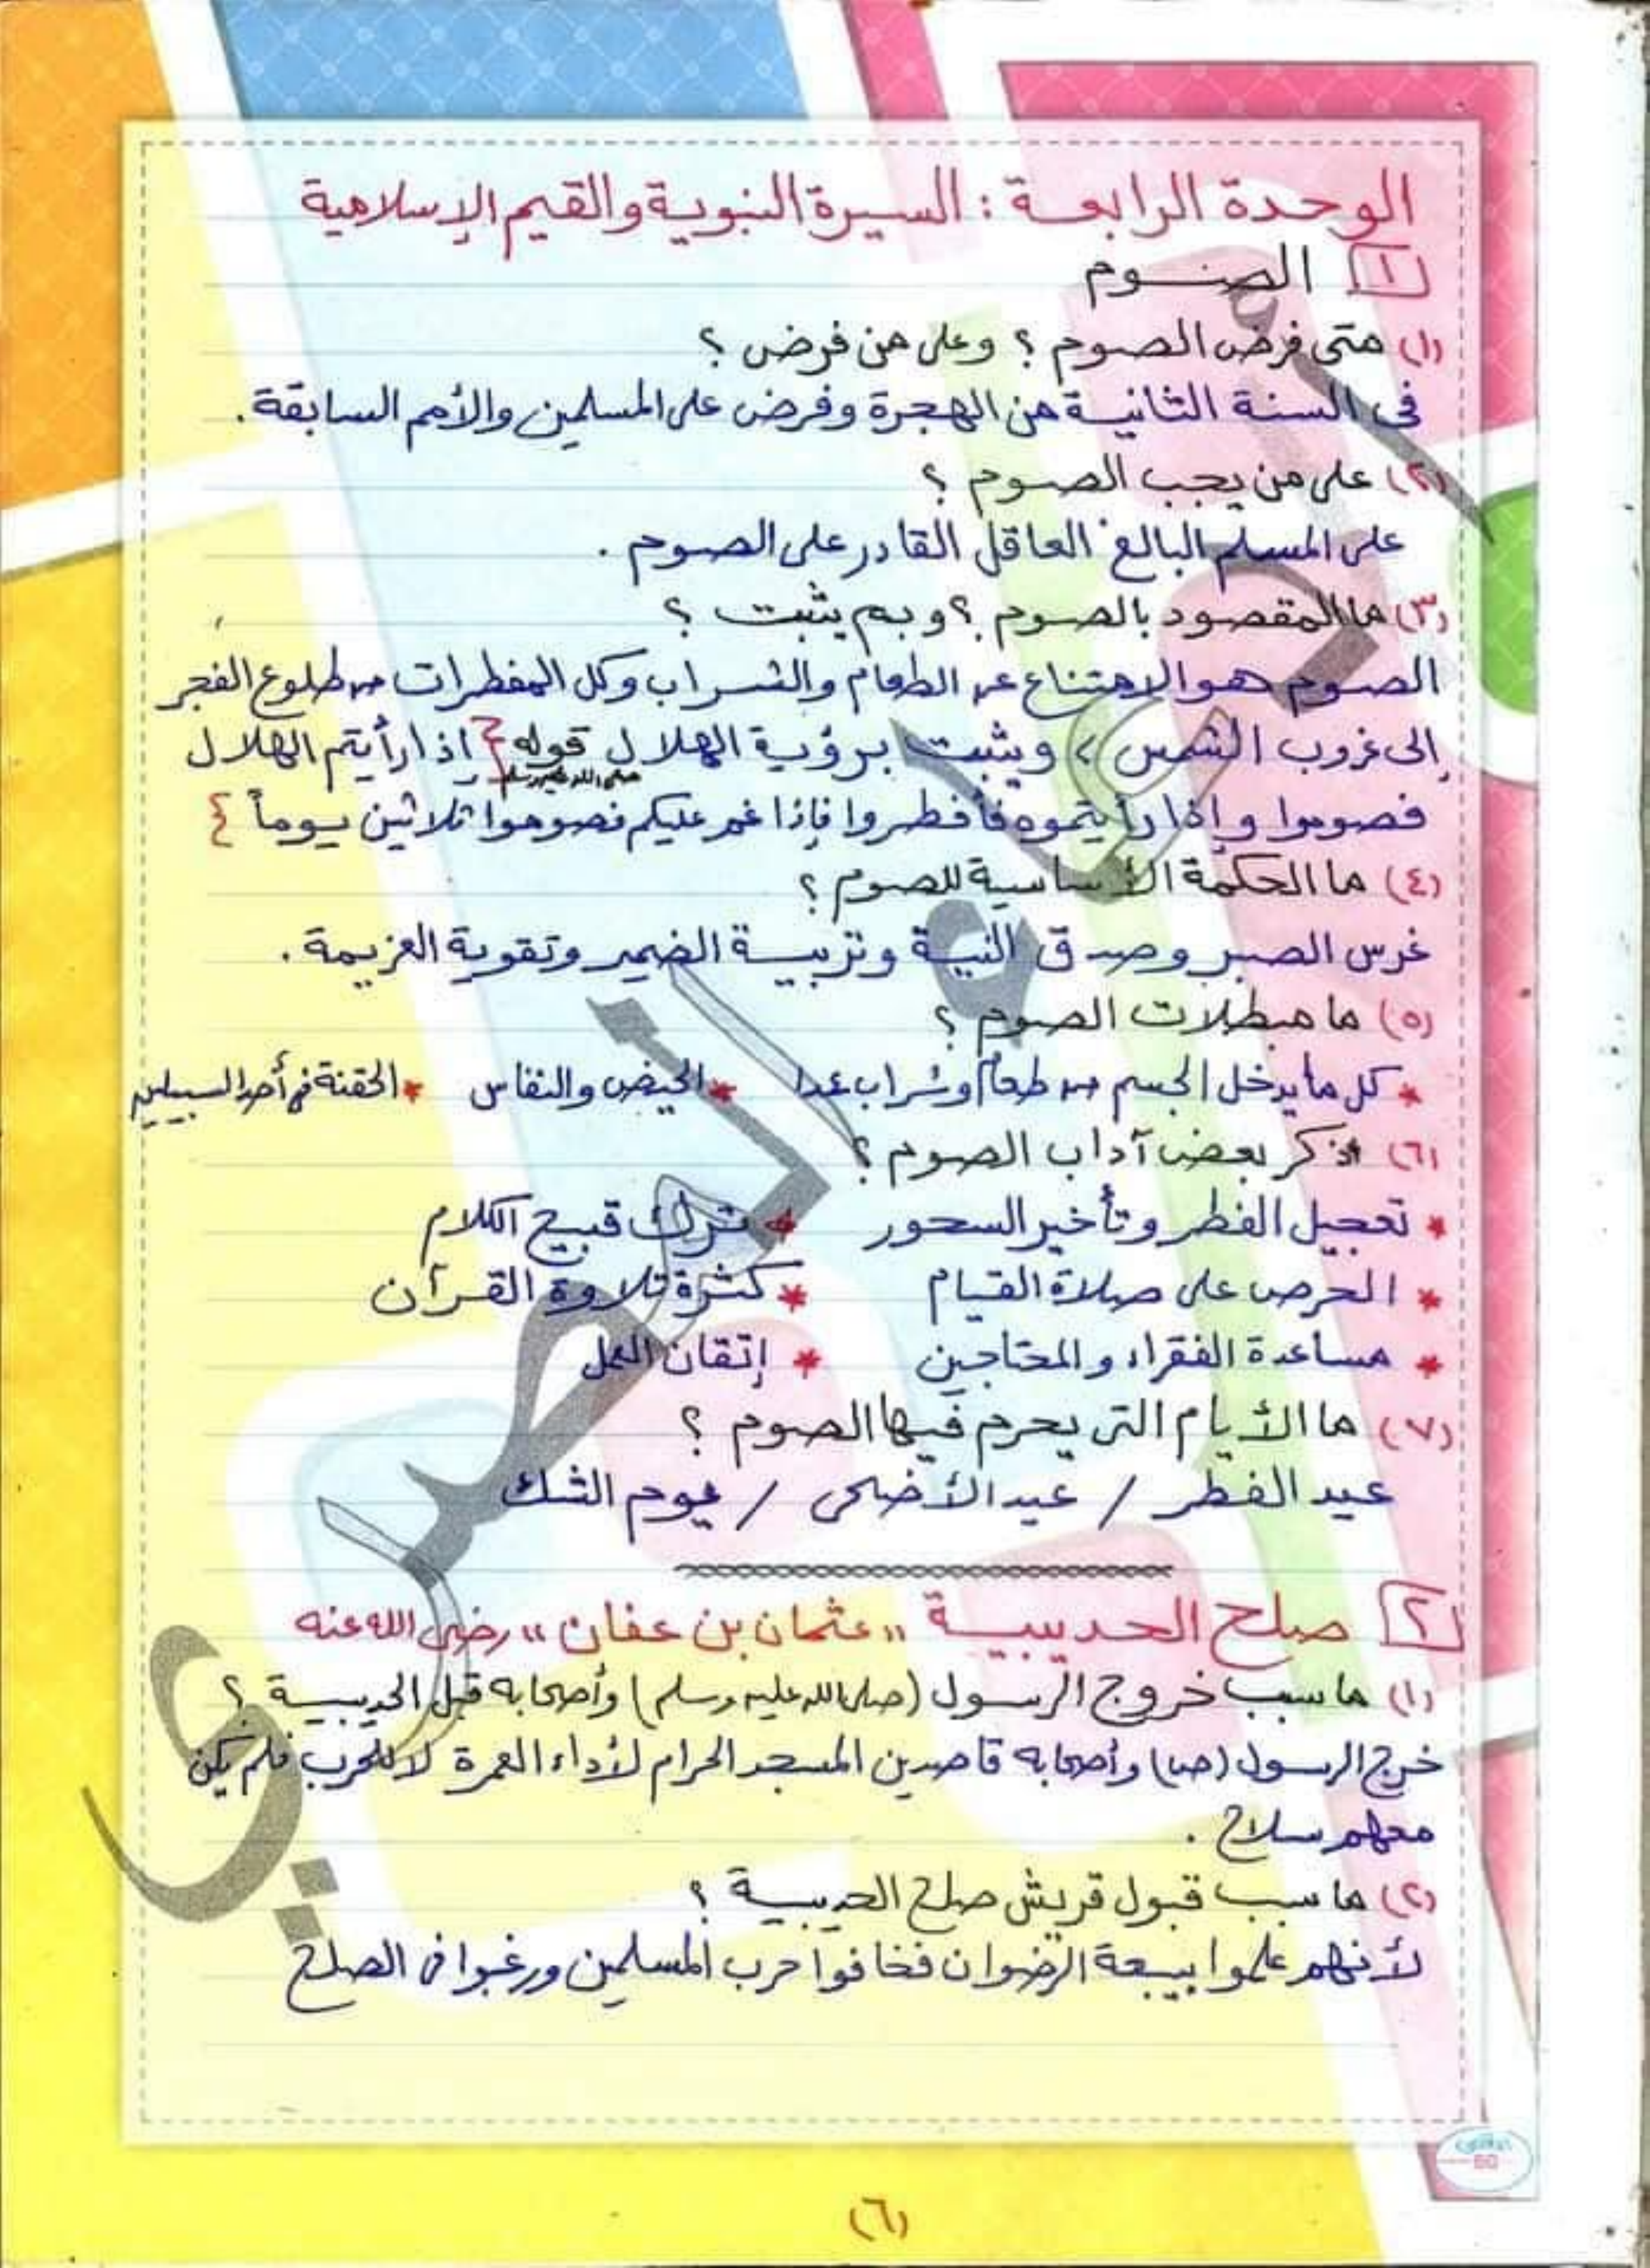 الوحدة الرابعة : السيرة النبوية والقيم الإسلامية
١ الصوم
(١) متى فرض الصوم ؟ وعلى من فرض ؟
فى السنة الثانية من الهجرة وفرض على المسلمين والأمم السابقة .
(٢) على من يجب الصوم ؟
على المسلم البالغ العاقل القادر على الصوم .
(٣) ما المقصود بالصوم ؟ و بم يثبت ؟
الصوم هو الامتناع عن الطعام والشراب وكل المفطرات من طلوع الفجر
إلى غروب الشمس ، ويثبت برؤية الهلال قوله صلى الله عليه وسلم { اذا رأيتم الهلال
فصوموا وإذا رأيتموه فأفطروا فإذا غم عليكم فصوموا ثلاثين يوماً }
(٤) ما الحكمة الأساسية للصوم ؟
غرس الصبر وصدق النية وتربية الضمير وتقوية العزيمة .
(٥) ما مبطلات الصوم ؟
* كل ما يدخل الجسم من طعام وشراب عمدا * الحيض والنفاس * الحقنة فى أحد السبيلين
(٦) اذكر بعض آداب الصوم ؟
* تعجيل الفطر وتأخير السحور * ترك قبيح الكلام
* الحرص على صلاة القيام * كثرة تلاوة القرآن
* مساعدة الفقراء والمحتاجين * إتقان العمل
(٧) ما الأيام التى يحرم فيها الصوم ؟
عيد الفطر / عيد الأضحى / يوم الشك
٢ صلح الحديبية " عثمان بن عفان " رضى الله عنه
(١) ما سبب خروج الرسول (صلى الله عليه وسلم) وأصحابه قبل الحديبية ؟
خرج الرسول (ص) وأصحابه قاصدين المسجد الحرام لأداء العمرة لا للحرب فلم يكن
معهم سلاح .
(٢) ما سبب قبول قريش صلح الحديبية ؟
لأنهم علموا ببيعة الرضوان فخافوا حرب المسلمين ورغبوا فى الصلح
(٦)